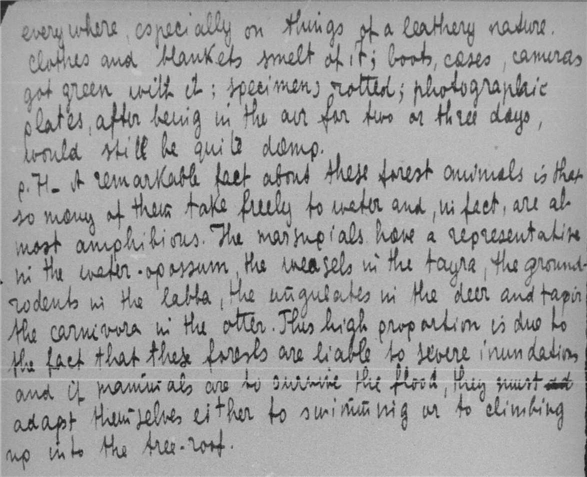 everywhere, especially on things of a leathery nature.
Clothes and blankets smelt of it; boots, cases, cameras
got green with it; specimens rotted; photographic
plates, after being in the air for two or three days,
would still be quite damp.
p. 71_ A remarkable fact about these forest animals is that
so many of them take freely to water and, in fact, are al-
most amphibious. The marsupials have a representative
in the water-opossum, the weasels in the tayra, the ground-
rodents in the labba, the ungulates in the deer and tapir
the carnivora in the otter. This high proportion is due to
the fact that these forests are liable to severe inundations
and if mammals are to survive the flood, they must
adapt themselves either to swimming or to climbing
up into the tree-roof.